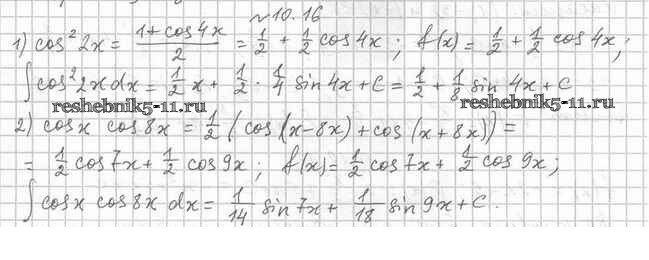 №10.16
1) cos² 2x = (1+cos4x)/2 = 1/2 + 1/2 cos 4x ; f(x) = 1/2 + 1/2 cos 4x ;
∫ cos² 2x dx = 1/2 x + 1/2 · 1/4 sin 4x + C = 1/2 + 1/8 sin 4x + C
reshebnik5-11.ru reshebnik5-11.ru
2) cosx cos8x = 1/2 (cos(x-8x) + cos(x+8x)) =
= 1/2 cos7x + 1/2 cos9x ; f(x) = 1/2 cos7x + 1/2 cos 9x ;
∫ cosx cos8x dx = 1/14 sin7x + 1/18 sin9x + C .